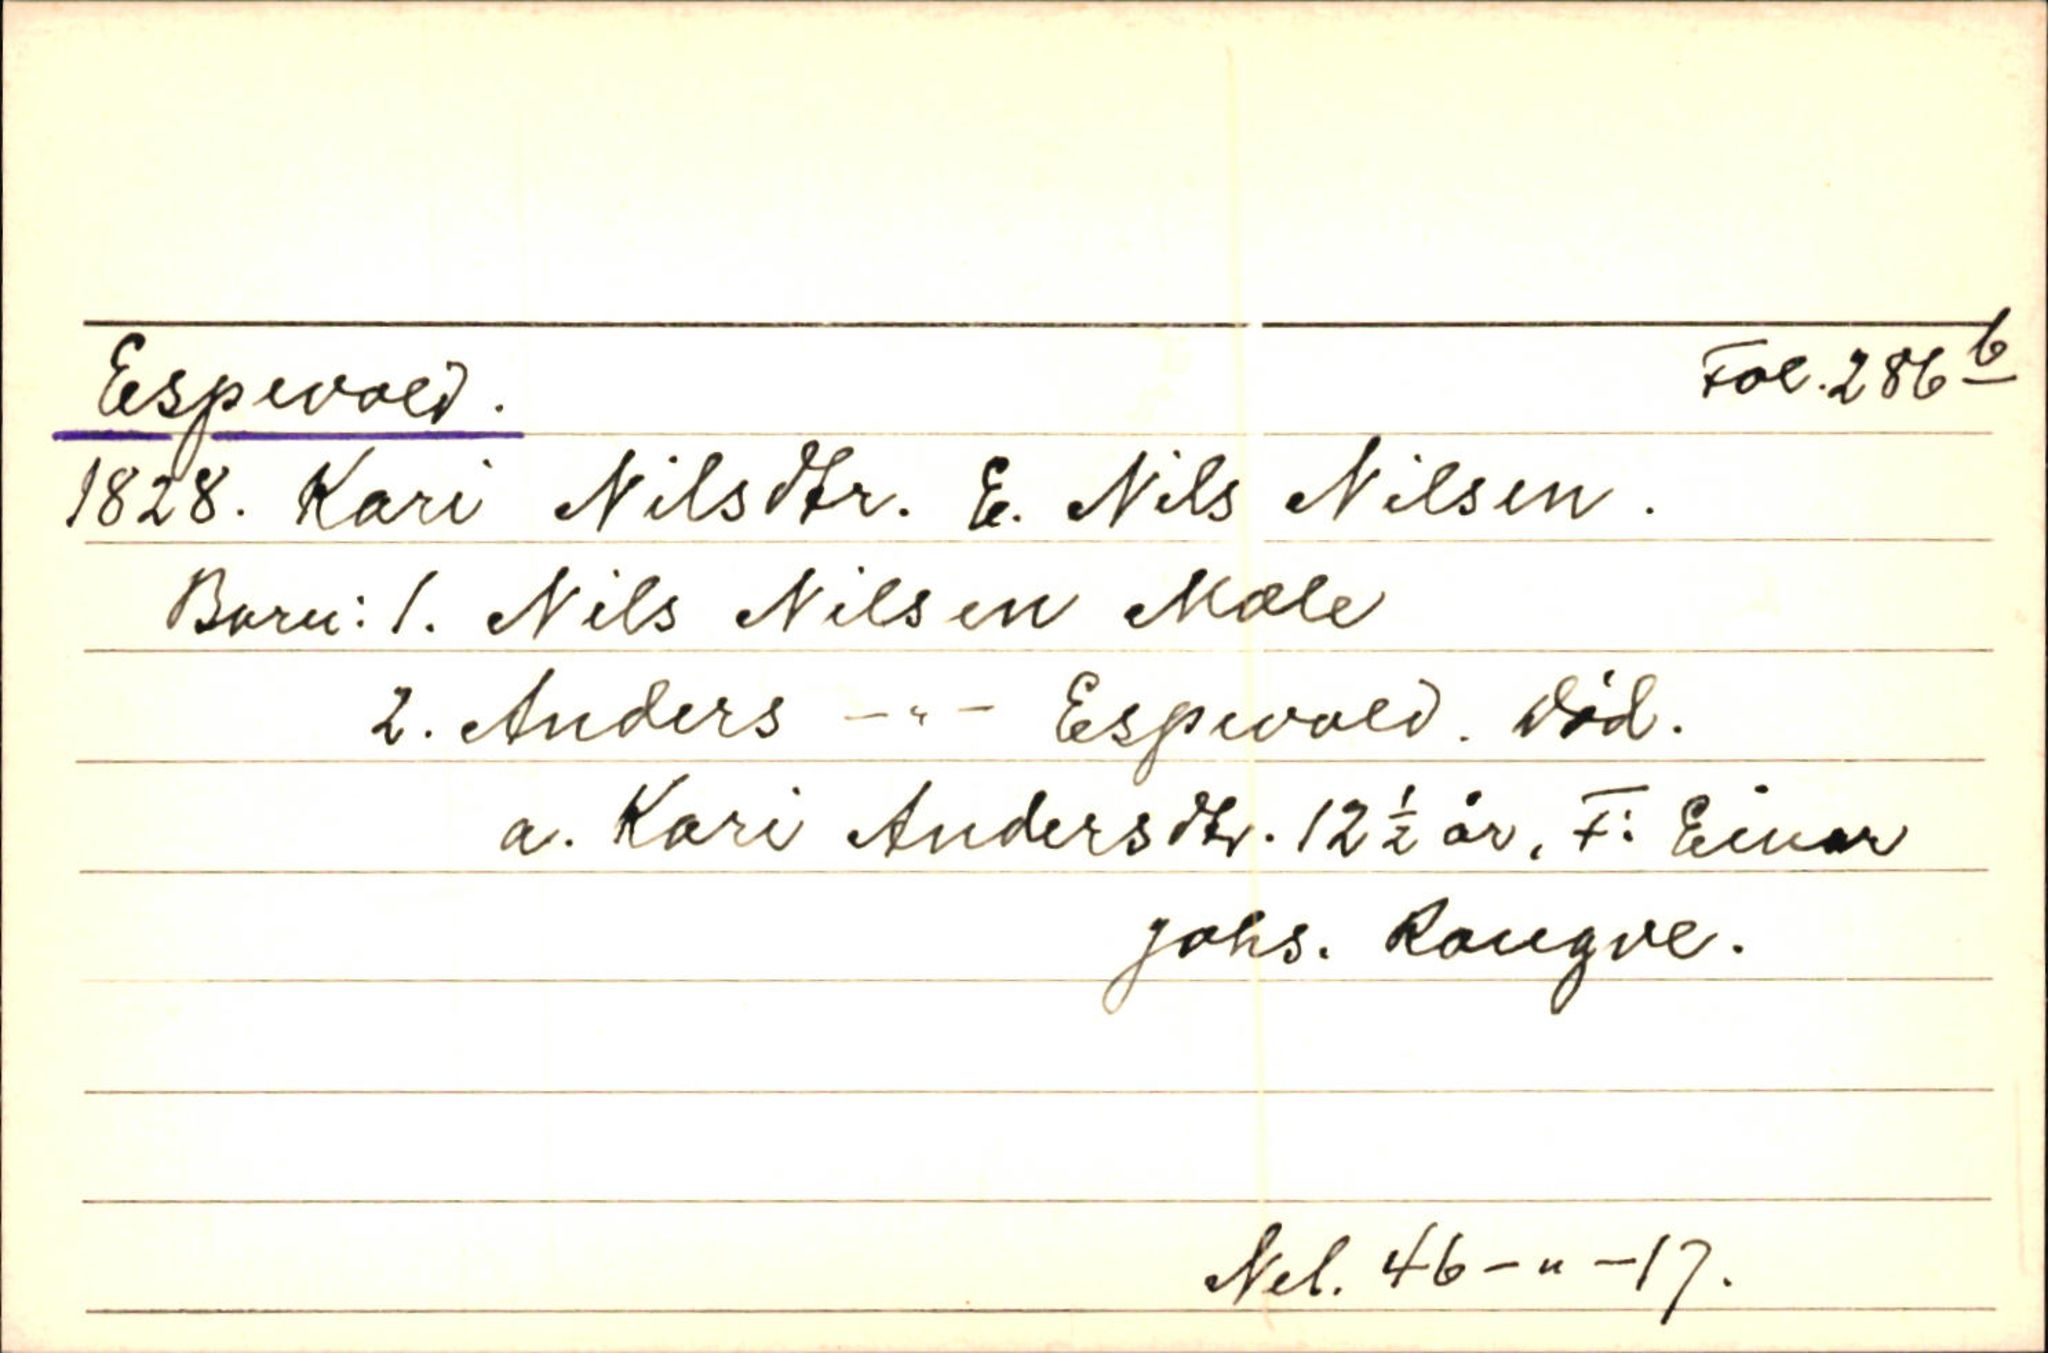 Espevold. Fol. 286 b
1828. Kari Nilsdtr. E. Nils Nilsen.
Born: 1. Nils Nilsen Mæle
2. Anders -"- Espevold. Död.
a. Kari Andersdtr. 12½ år, F: Einar
Johs. Rongve.
Nel. 46-"-17.